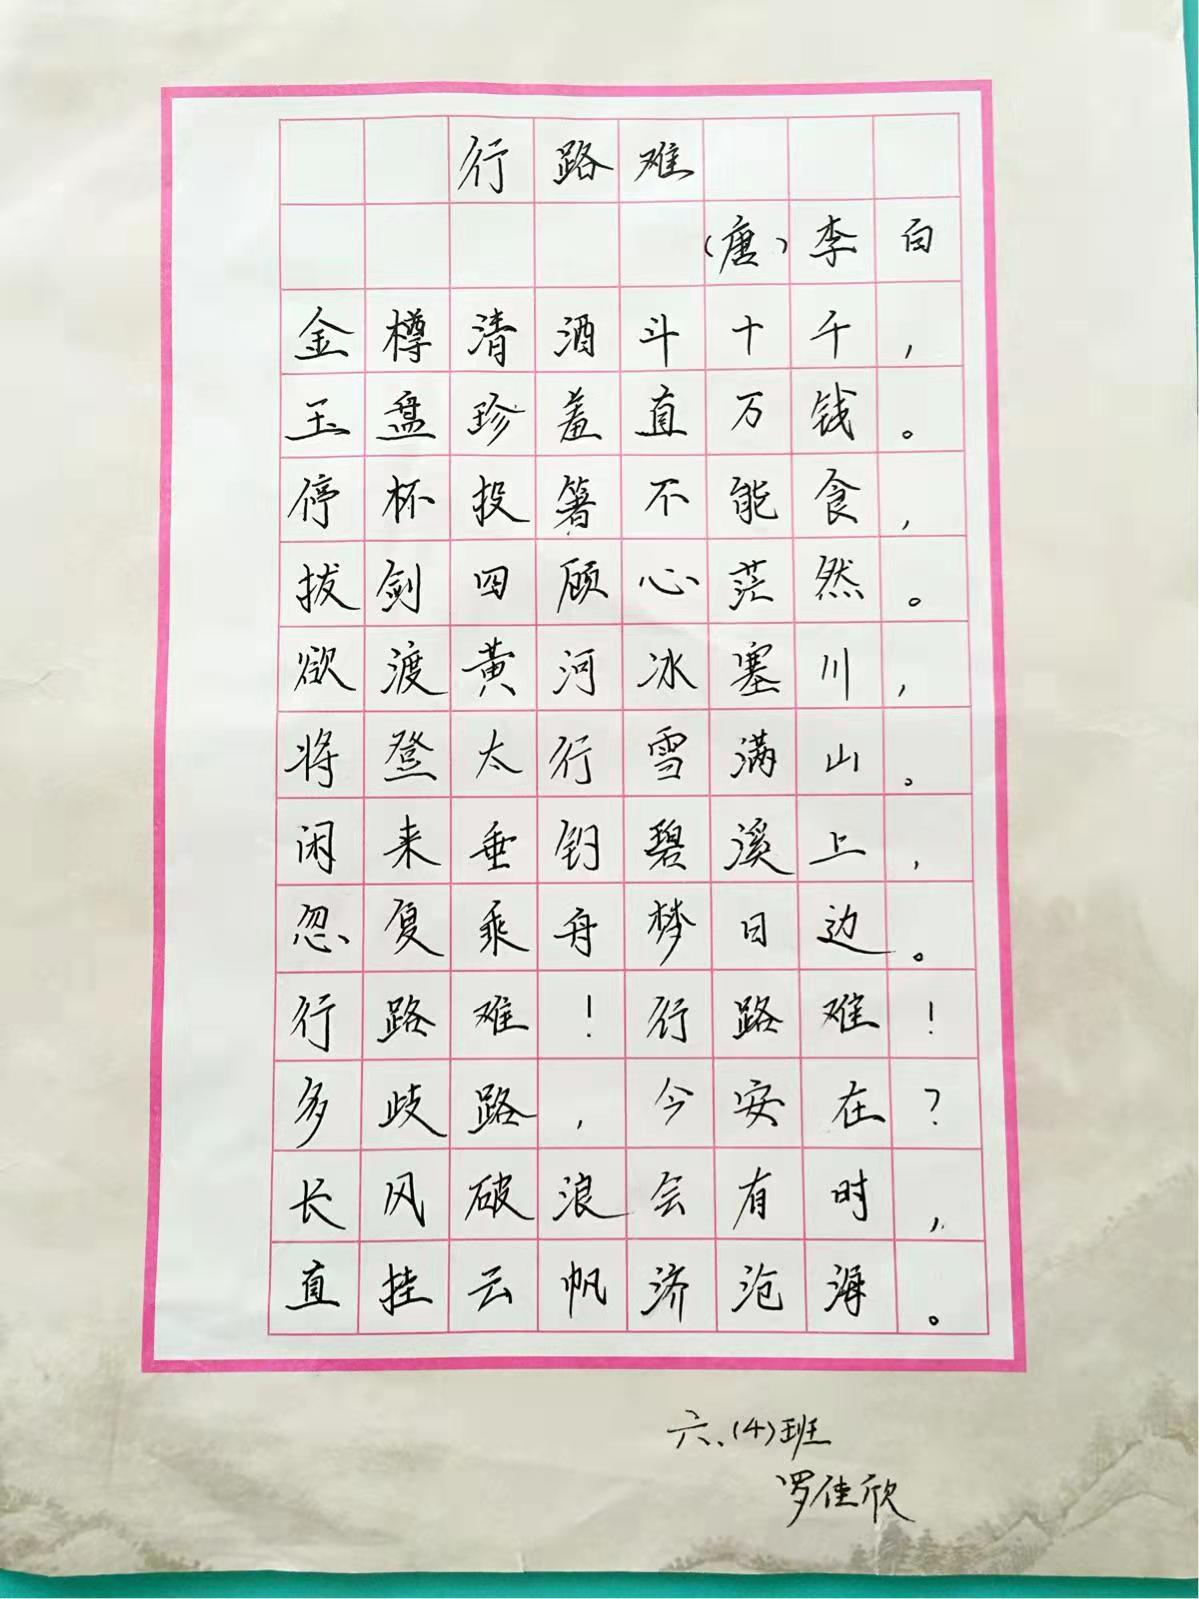 行路难
（唐）李白
金樽清酒斗十千，
玉盘珍羞直万钱。
停杯投箸不能食，
拔剑四顾心茫然。
欲渡黄河冰塞川，
将登太行雪满山。
闲来垂钓碧溪上，
忽复乘舟梦日边。
行路难！行路难！
多歧路，今安在？
长风破浪会有时，
直挂云帆济沧海。
六、（4）班
罗佳欣